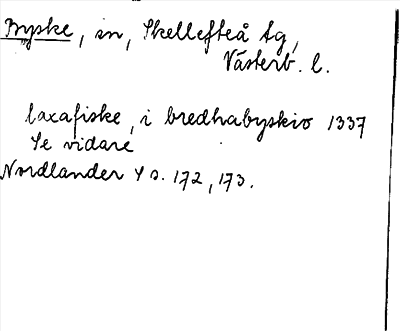 Byske, sn, Skellefteå tg,
Västerb. l.
laxafiske, i bredhabyskio 1337
Se vidare
Nordlander 4 s. 172, 173.